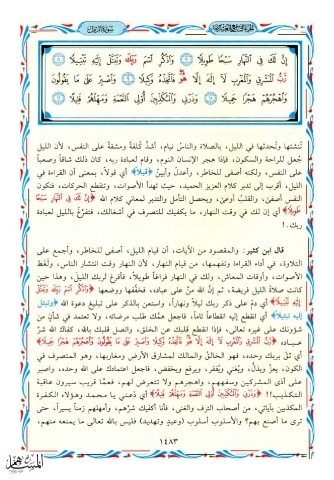 إِنَّ لَكَ فِي النَّهَارِ سَبْحًا طَوِيلًا ۝٧ وَاذْكُرِ اسْمَ رَبِّكَ وَتَبَتَّلْ إِلَيْهِ تَبْتِيلًا ۝٨
رَّبُّ الْمَشْرِقِ وَالْمَغْرِبِ لَا إِلَٰهَ إِلَّا هُوَ فَاتَّخِذْهُ وَكِيلًا ۝٩ وَاصْبِرْ عَلَىٰ مَا يَقُولُونَ
وَاهْجُرْهُمْ هَجْرًا جَمِيلًا ۝١٠ وَذَرْنِي وَالْمُكَذِّبِينَ أُولِي النَّعْمَةِ وَمَهِّلْهُمْ قَلِيلًا ۝١١
تُنشئها وتُحدثها في الليل، بالصلاة والناسُ نيام، أشدُّ كُلفةً ومشقةً على النفس، لأن الليل
جُعل للراحة والسكون، فإذا هجر الإنسان النوم، وقام لعبادة ربه، كان ذلك شاقاً وصعباً
على النفس، ولكنه أصفى للخاطر، وأعدلُ وأبينُ ﴿قيلاً﴾ أي قولاً، بمعنى أن القراءة في
الليل، أقرب إلى تدبر كلام العزيز الحميد، حيث تهدأ الأصوات، وتنقطع الحركات، فتكون
النفس أصفى، والقلبُ أوعى، ويحصل التأمل والتدبر لمعاني كلام الله ﴿إنَّ لَكَ فِي النَّهَارِ سَبْحًا
طَوِيلًا﴾ أي إن لك في وقت النهار، ما يكفيك للتصرف في أشغالك، فتفرَّغْ بالليل لعبادة
ربك.!
قال ابن كثير: والمقصود من الآيات، أن قيام الليل، أصفى للخاطر، وأجمع على
التلاوة، في أداء القراءة وتفهمها، من قيام النهار، لأن النهار وقت انتشار الناس، ولَغَط
الأصوات، وأوقات المعاش، ولك في النهار فراغاً طويلاً، فأفرغ لربك الليل، وهذا حين
كانت صلاة الليل فريضة، ثم إنَّ الله منَّ على عباده، فخفَّفها ووضعها ﴿وَاذْكُرِ اسْمَ رَبِّكَ وَتَبَتَّلْ
إِلَيْهِ تَبْتِيلًا﴾ أي دمْ على ذكر ربك ليلاً ونهاراً، واستعن بالذكر على تبليغ دعوة الله ﴿وتبتل
إليه تبتيلاً﴾ أي انقطع إليه انقطاعاً تاماً، فاجعل همَّك طلب مرضاته، ولا تعتمد في شأنٍ من
شؤونك على غيره تعالى، فإذا انقطع قلبك عن الخلق، واتصل قلبك بالله، كفاك الله شرَّ
عباده ﴿رَبُّ الْمَشْرِقِ وَالْمَغْرِبِ لَا إِلَهَ إِلَّا هُوَ فَاتَّخِذْهُ وَكِيلًا وَاصْبِرْ عَلَى مَا يَقُولُونَ وَاهْجُرْهُمْ هَجْرًا جَمِيلًا﴾
أي ثقْ بربك وحده، فهو الخالقُ والمالك لمشارق الأرض ومغاربها، وهو المتصرف في
الكون، يعزُّ ويذلُّ، ويُغني ويُفقر، ويرفع ويخفض، فاجعل اعتمادك على الله وحده، واصبر
على أذى المشركين وسفههم، واهجرهم ولا تتعرض لهم، فعمَّا قريب سيرون عاقبة
التكذيب!! ﴿وَذَرْنِي وَالْمُكَذِّبِينَ أُولِي النَّعْمَةِ وَمَهِّلْهُمْ قَلِيلًا﴾ أي دَعني يا محمد وهؤلاء الكفرة
المكذبين بآياتي، من أصحاب الترف والغنى، فأنا أكفيك شرَّهم، وأمهلهم زمناً يسيراً، حتى
ترى ما أصنع بهم؟ والأسلوب أسلوب (وعيدٍ وتهديد) فليس بالله تعالى ما يمنعه منهم،
١٤٨٣